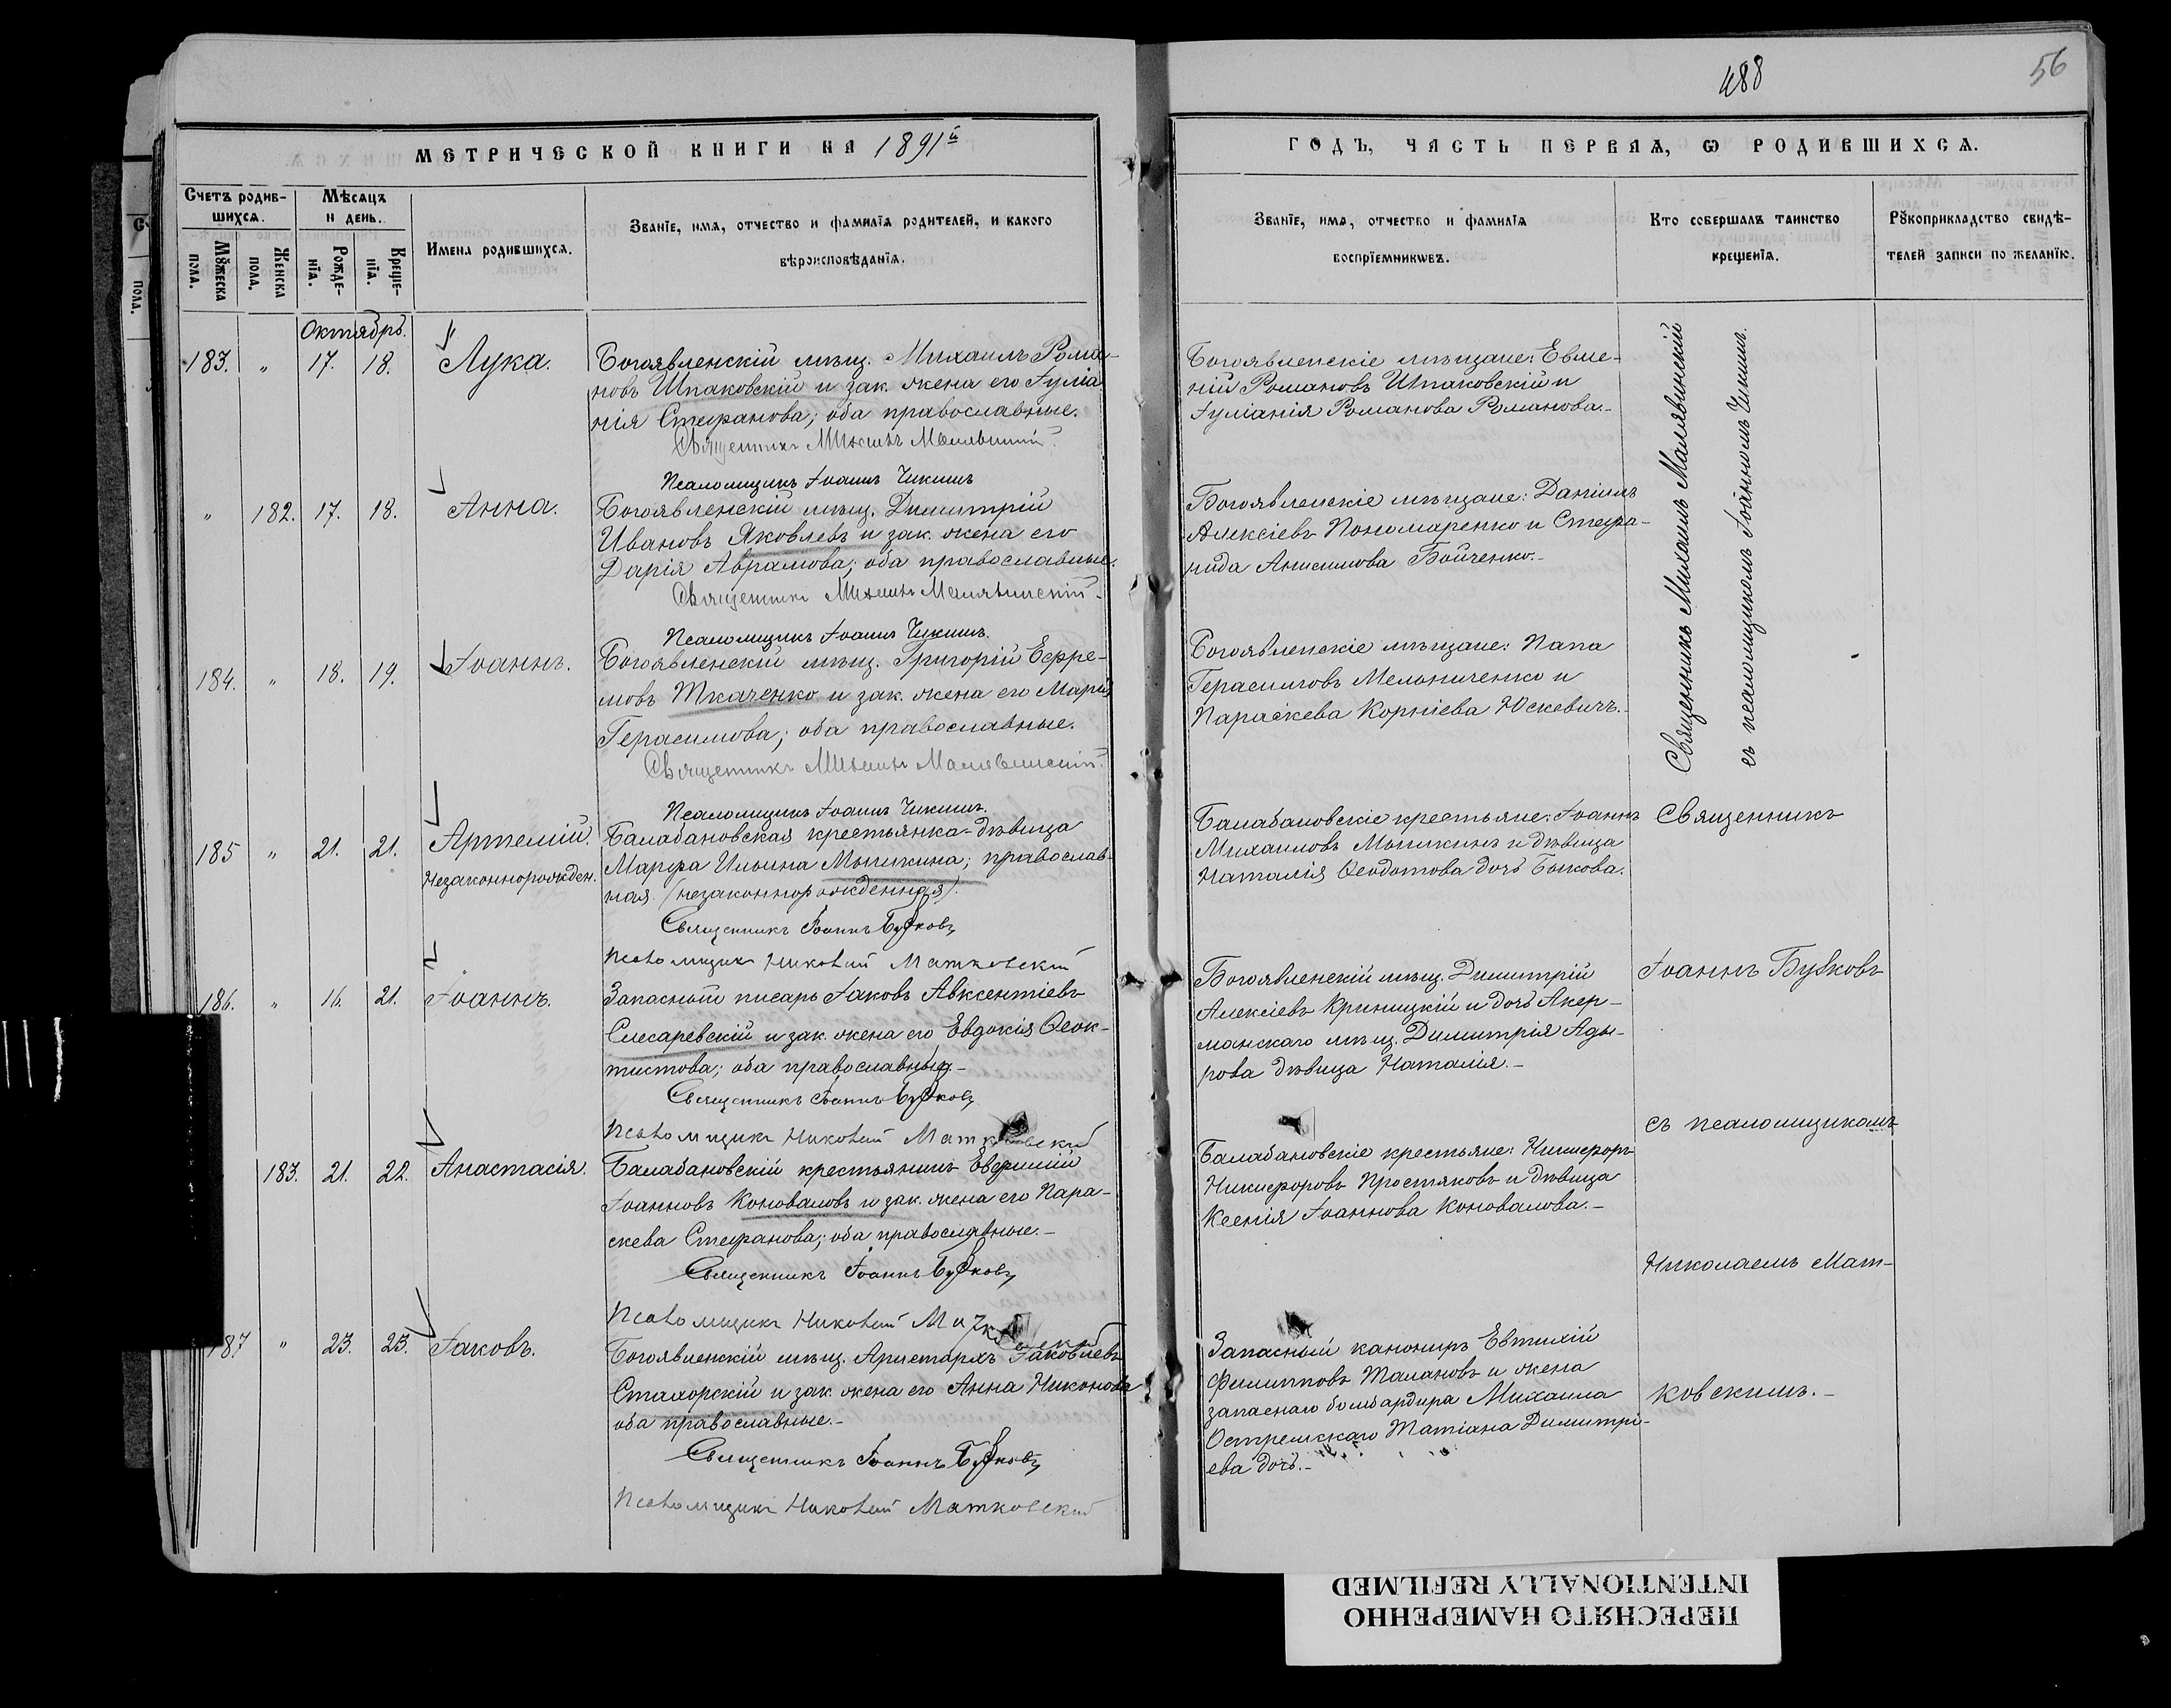 488
56
МЕТРИЧЕСКОЙ КНИГИ НА 1891й
ГОДЪ, ЧАСТЬ ПЕРВАЯ, Ѡ РОДИВШИХСЯ.
Счетъ родив-
шихся.
Мѣсяцъ
и день.
Мꙋжеска
пола.
Женска
пола.
Рожде-
нїя.
Креще-
нїя.
Имена родившихся.
Званїе, имя, отчество и фамилїя родителей, и какого
вѣроисповѣданїя.
Званїе, имя, отчество и фамилїя
воспрїемникѡвъ.
Кто совершалъ таинство
крещенїя.
Рꙋкоприкладство свидѣ-
телей записи по желанїю.
Октябрь.
183. " 17. 18. Лука.
Богоявленскій мѣщ. Михаилъ Рома-
новъ Шпаковскій и зак. жена его Іуліа
нія Стефанова; оба православные.
Священникъ Михаилъ Малявинскій.
Псаломщикъ Іоаннъ Чекишъ
Богоявленскіе мѣщане: Евме-
ній Романовъ Шпаковскій и
Іуліанія Романова Романова.-
" 182. 17. 18. Анна.
Богоявленскій мѣщ. Димитрій
Ивановъ Яковлевъ и зак. жена его
Дарія Аврамова; оба православные.
Священникъ Михаилъ Малявинскій.
Псаломщикъ Іоаннъ Чекишъ.
Богоявленскіе мѣщане: Даніилъ
Алексіевъ Пономаренко и Стефа-
нида Анисимова Бойченко.-
184. " 18. 19. Іоаннъ.
Богоявленскій мѣщ. Григорій Ефре-
мовъ Ткаченко и зак. жена его Марія
Герасимова; оба православные.
Священникъ Михаилъ Малявинскій.
Псаломщикъ Іоаннъ Чекишъ.
Богоявленскіе мѣщане: Папа
Герасимовъ Мельниченко и
Параскева Корніева Юскевичъ.-
Священникъ Михаилъ Малявинскій
съ псаломщикомъ Іоанномъ Чекишъ.
185 " 21. 21. Артемій.
Незаконнорожден.
Балабановская крестьянка-дѣвица
Марфа Ильина Мышкина; православ-
ная. (незаконнорожденная).
Священникъ Іоаннъ Бужковъ
Псаломщикъ Николай Матковскій
Балабановскіе крестьяне: Іоаннъ
Михаиловъ Мышкинъ и дѣвица
Наталія Ѳеодотова дочь Быкова.
186. " 16. 21. Іоаннъ.
Запасный писарь Іаковъ Авксентіевъ
Слесаревскій и зак. жена его Евдокія Ѳеок-
тистова; оба православные.-
Священникъ Іоаннъ Бужковъ
Псаломщикъ Николай Матковскій
Богоявленскій мѣщ. Димитрій
Алексіевъ Криницкій и дочь Акер-
манскаго мѣщ. Димитрія Ады-
рова дѣвица Наталія.-
183. 21. 22. Анастасія.
Балабановскій крестьянинъ Евфимій
Іоанновъ Коноваловъ и зак. жена его Пара-
скева Стефанова; оба православные.-
Священникъ Іоаннъ Бужковъ
Псаломщикъ Николай
Балабановскіе крестьяне: Никифоръ
Никифоровъ Простяковъ и дѣвица
Ксенія Іоаннова Коновалова.-
187 " 23. 23. Іаковъ.
Богоявленскій мѣщ. Аристархъ Іаковлевъ
Стахорскій и зак. жена его Анна Никонова
оба православные.-
Священникъ Іоаннъ Бужковъ
Псаломщикъ Николай Матковскій
Запасный канониръ Евтихій
Филипповъ Талановъ и жена
запаснаго бомбардира Михаила
Остремскаго Татіана Димитрі-
ева дочь.-
Священникъ
Іоаннъ Бужковъ
съ псаломщикомъ
Николаемъ Мат-
ковскимъ.-
ПЕРЕСНЯТО НАМЕРЕННО
INTENTIONALLY REFILMED